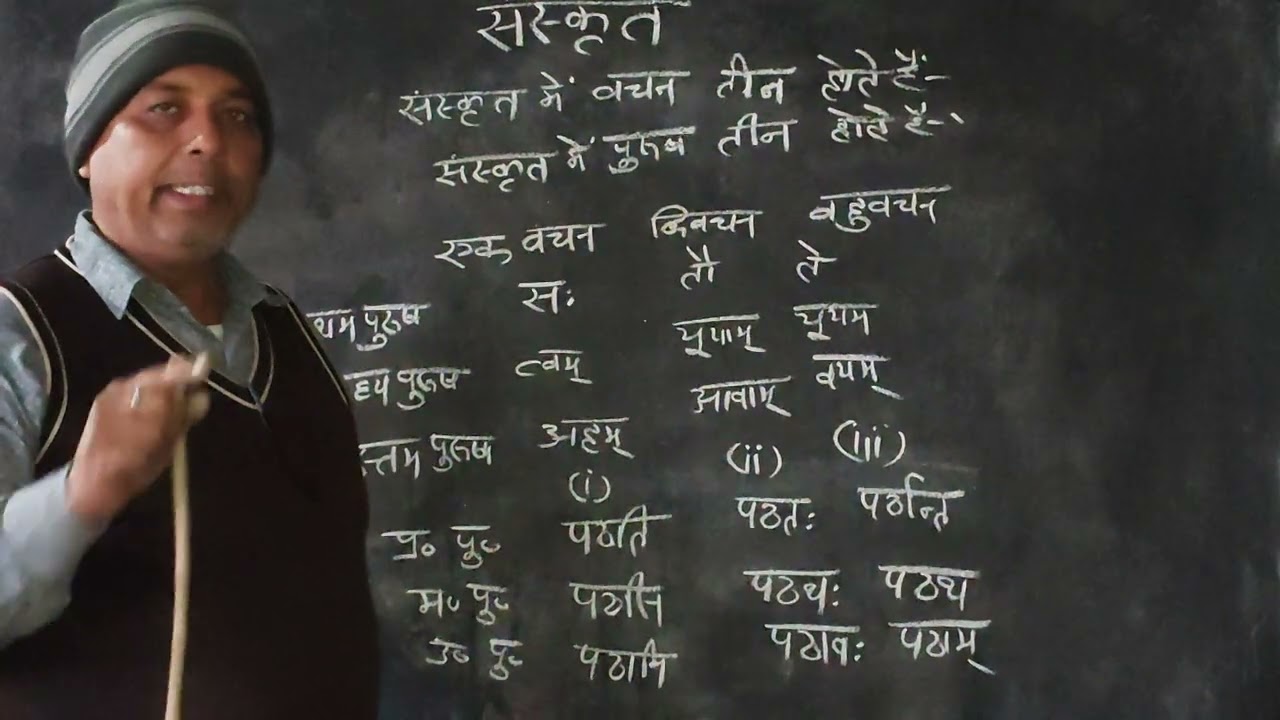 संस्कृत
संस्कृत में वचन तीन होते हैं-
संस्कृत में पुरूष तीन होते हैं-
एक वचन द्विवचन बहुवचन
थम पुरूष सः तौ ते
ध्य पुरूष त्वम् यूवाम् यूयम
त्तम पुरूष अहम् आवाम् वयम्
(i) (ii) (iii)
प्र० पु० पठति पठतः पठन्ति
म० पु० पठसि पठथः पठथ
उ० पु० पठामि पठावः पठाम्